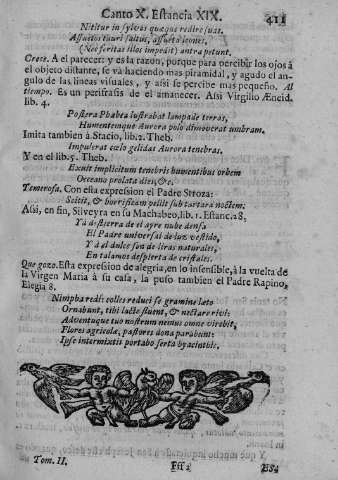 Canto X. Estancia XIX. 411
Nititur in sylvas quæque redire suas.
Assuetos tauri saltus, assueta leones,
(Nec feritas illos impedit) antra petunt.
Crece. A el parecer: y es la razon, porque para percibir los ojos à
el objeto distante, se va haciendo mas piramidal, y agudo el an-
gulo de las lineas visuales, y assi se percibe mas pequeño. Al
tiempo. Es un perifrasis de el amanecer. Assi Virgilio Æneid.
lib. 4.
Postera Phæbea lustrabat lampade terras,
Humentemque Aurora polo dimoverat umbram.
Imita tambien à Stacio, lib. 2. Theb.
Impulerat cœlo gelidas Aurora tenebras.
Y en el lib. 5. Theb.
Exuit implicitum tenebris humentibus orbem
Occeano prolata dies, &c.
Temerosa. Con esta expresion el Padre Stroza:
&c. & horrificam pellit sub tartara noctem.
Assi, en fin, Silveyra en su Machabeo, lib. 1. Estanc. 28,
Yà destierra de el ayre nube densa
El Padre universal de luz vestido,
Y à el dulce son de liras naturales,
En talamos despierta de cristales.
Que gozo. Esta expresion de alegria, en lo insensible, à la vuelta de
la Virgen Maria à su casa, la puso tambien el Padre Rapino,
Elegia 8.
Nimpha redi: colles reduci se gramine læto
Ornabunt, tibi lacte fluent, & nectare rivi:
Adventuque tuo nostrum nemus omne virebit,
Flores agricolæ, pastores dona parabunt:
Ipse intermixtis portabo serta hyacinthis.
Tom. II. Fff 2 Ess4